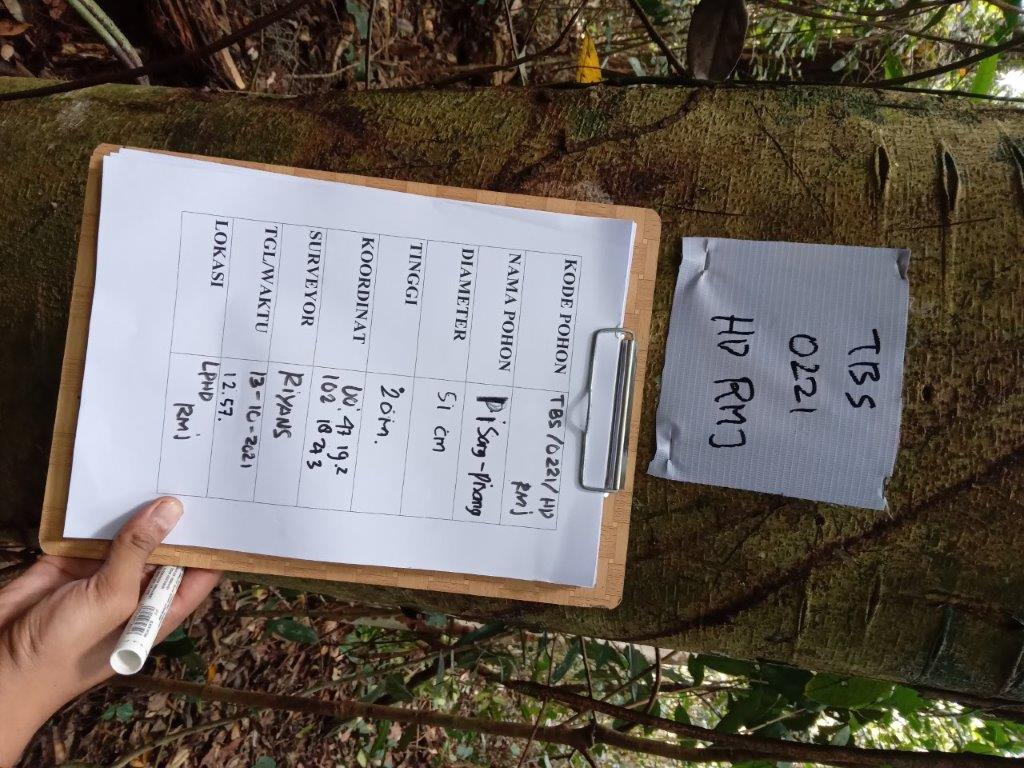 TBS
0221
HD RMJ
KODE POHON TBS/0221/HD
RMJ
NAMA POHON Pisang-pisang
DIAMETER 51 cm
TINGGI 20m.
KOORDINAT 00° 47 19.2
102 18 27 3
SURVEYOR RIYANS
TGL/WAKTU 13-10-2021
12.57.
LOKASI LPHD
RMJ